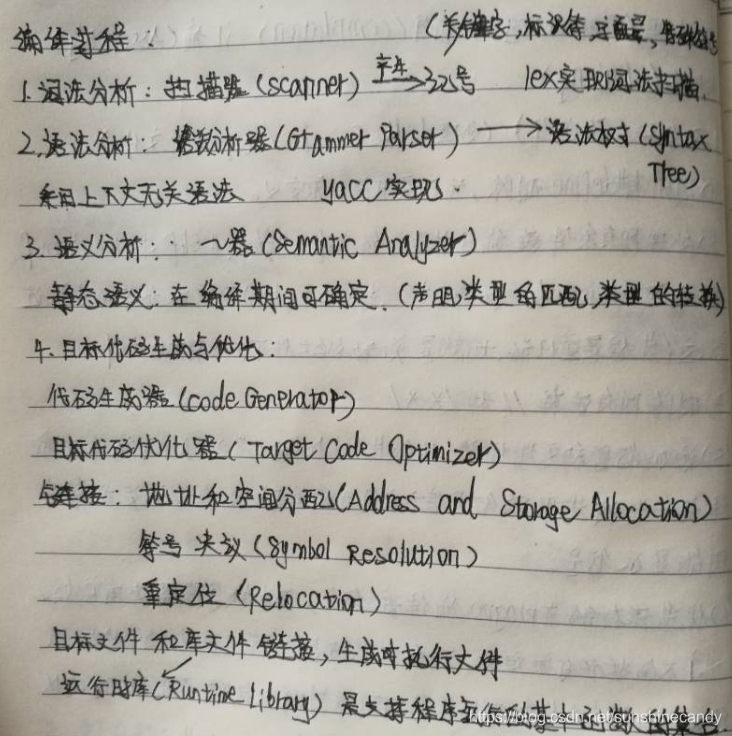 编译过程:
(关键字,标识符,字面量,特殊符号
1.词法分析:扫描器(scanner) 产生→记号 lex实现词法扫描.
2.语法分析: 语法分析器(Grammer Parser) → 语法树(Syntax Tree)
采用上下文无关语法 yacc 实现.
3.语义分析: ~器(Semantic Analyzer)
静态语义:在编译期间可确定.(声明类型的匹配,类型的转换)
4.目标代码生成与优化:
代码生成器(code Generator)
目标代码优化器(Target Code Optimizer)
链接: 地址和空间分配(Address and Storage Allocation)
符号决议(Symbol Resolution)
重定位(Relocation)
目标文件和库文件链接,生成可执行文件
运行时库(Runtime Library) 是支持程序运行的基本函数的集合.
https://blog.csdn.net/sunshinecandy